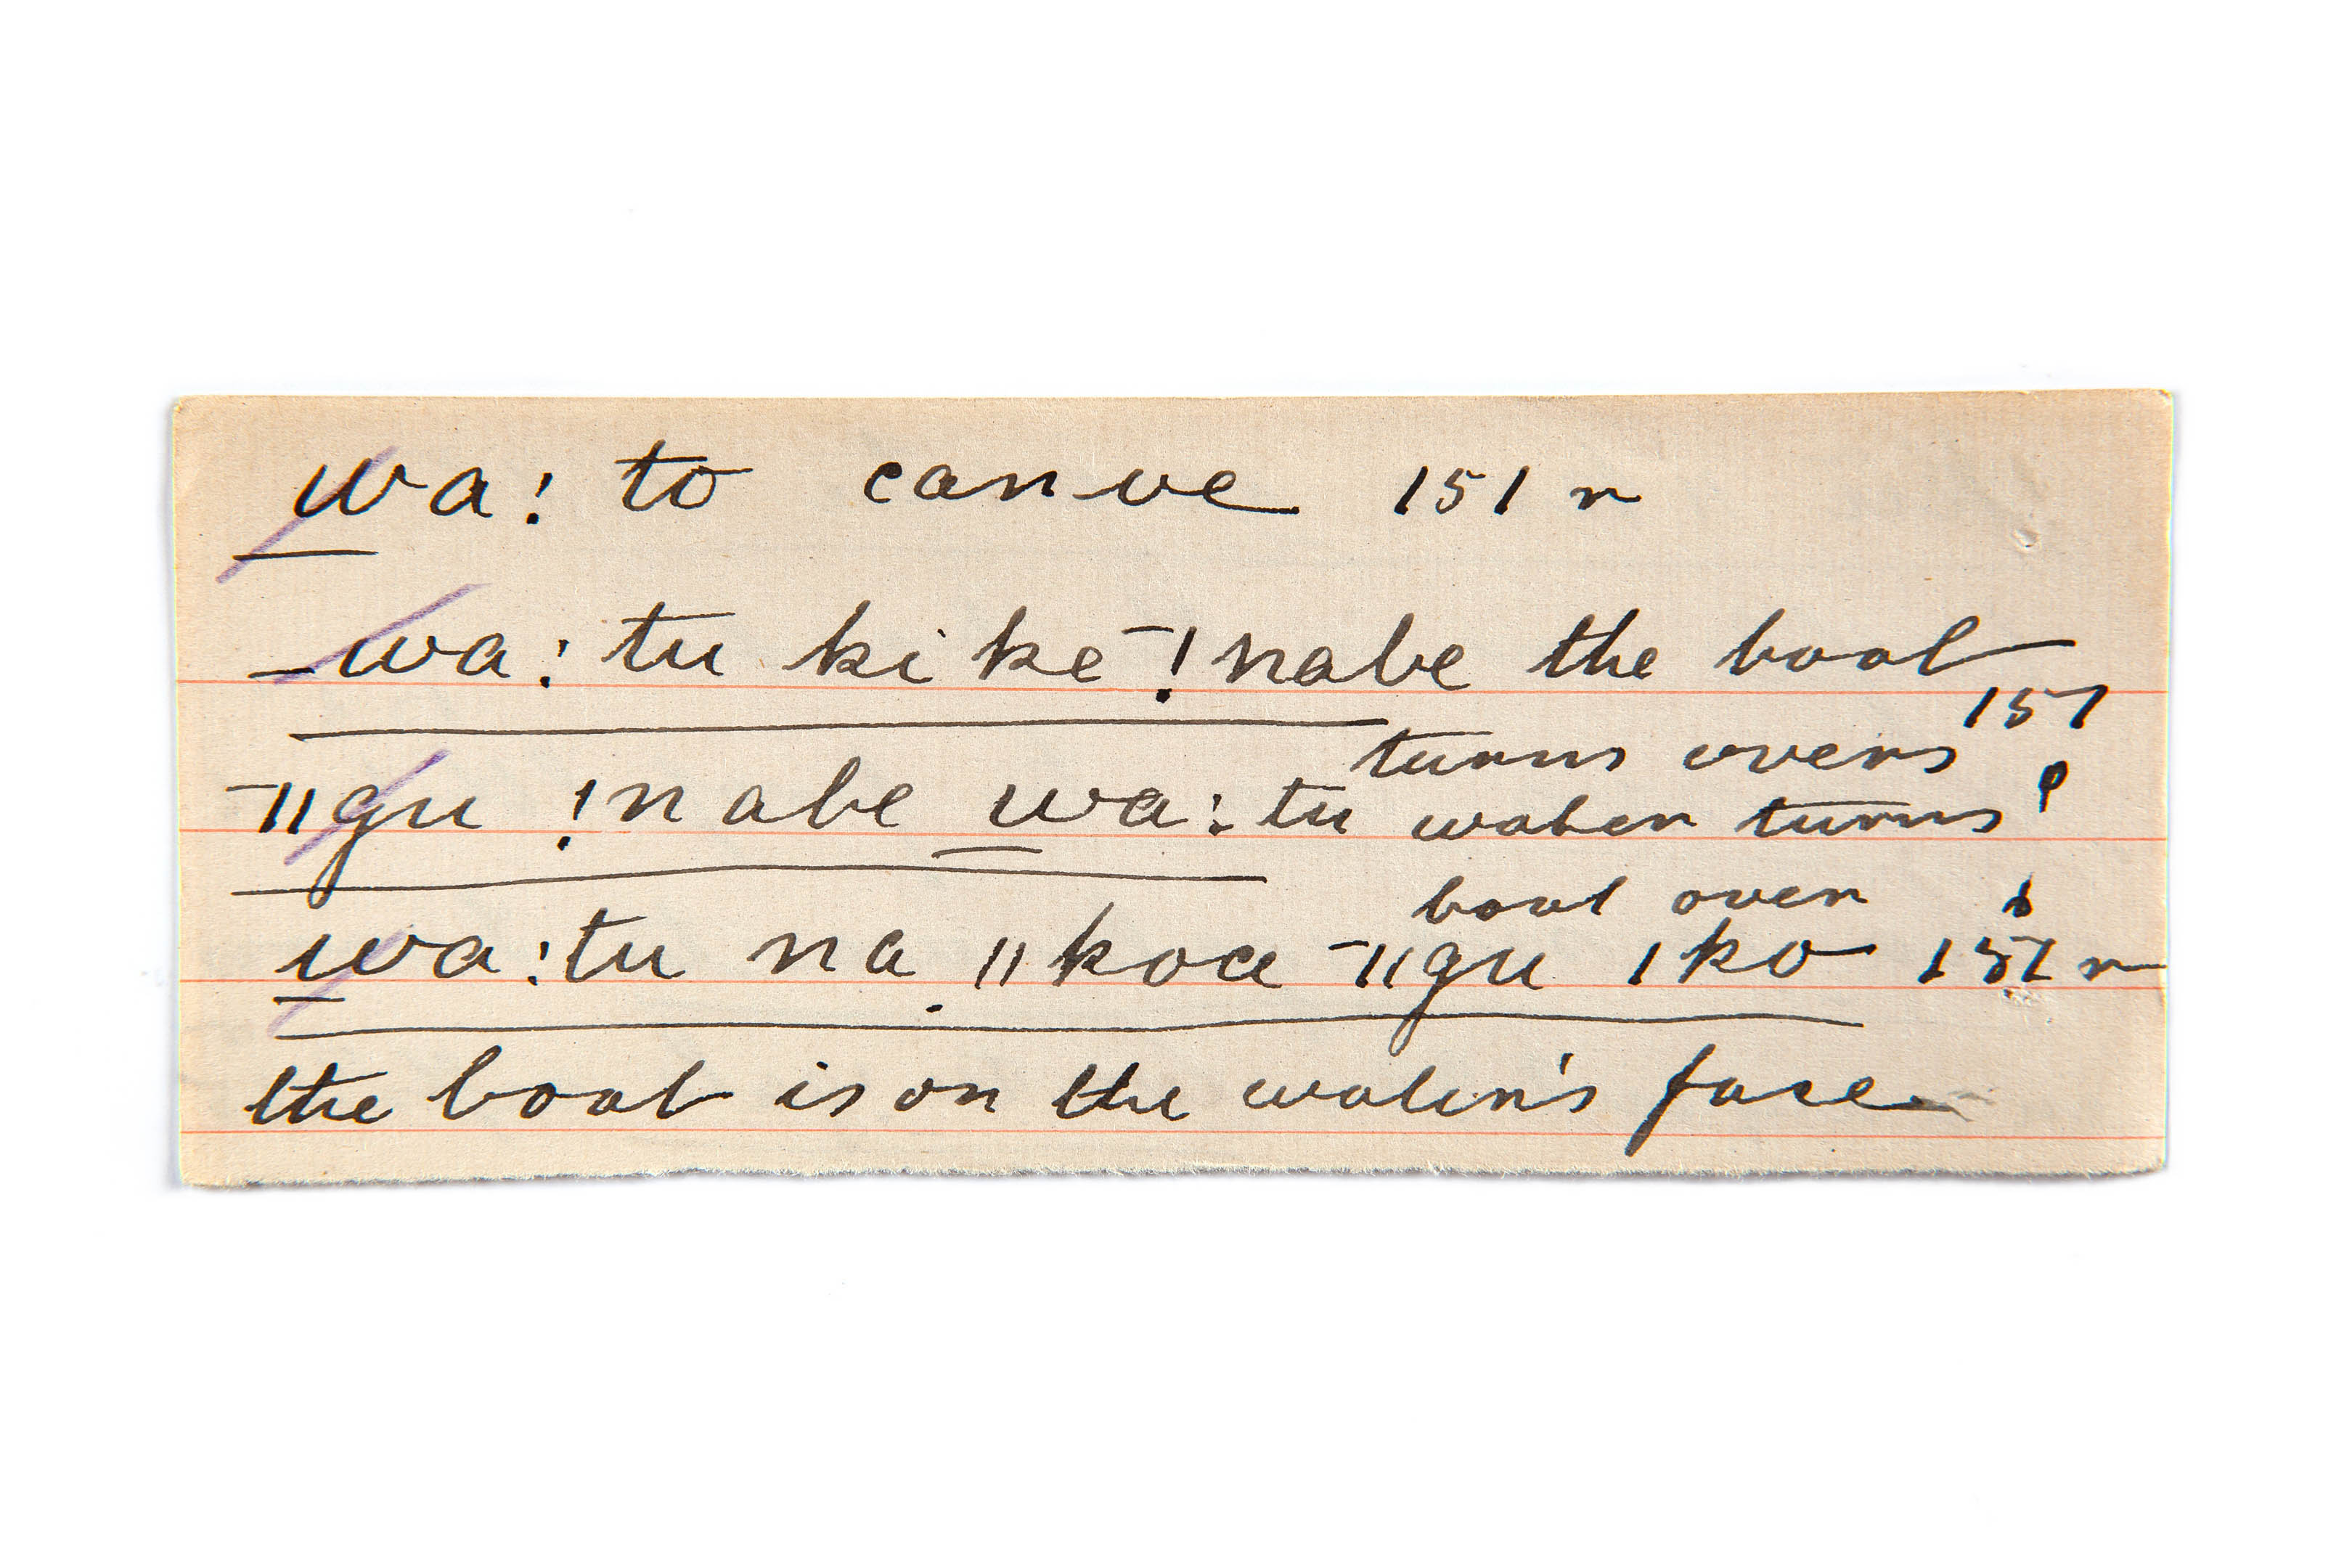 wa: to canoe 151 r
wa: tu ki ke ‾!nabe the boat
151
turns overs
‾ǁgu !nabe wa: tu water turns
boat over
wa: tu na ǁkoce ‾ǁgu ǀko 151 r
the boat is on the water's face